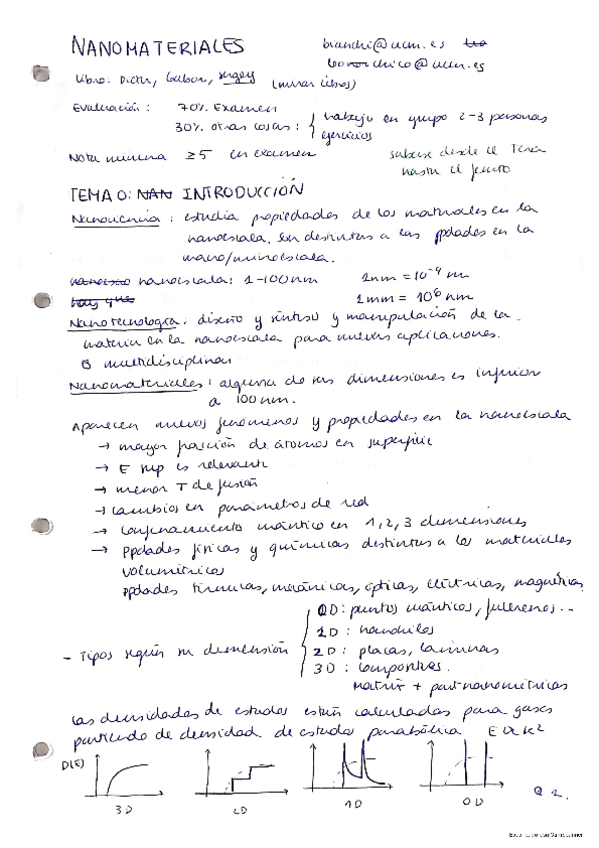 NANOMATERIALES bianchi@ucm.es
leonorchico@ucm.es
Libro: Dieter, Gabor, Sergey (mirar libros)
Evaluación: 70% Examen
30% otras cosas: trabajo en grupo 2-3 personas
ejercicios
Nota mínima ≥5 en examen saberse desde el Tera
hasta el femto
TEMA 0: NAN INTRODUCCIÓN
Nanociencia: estudia propiedades de los materiales en la
nanoescala. Son distintas a las ppdades en la
macro/microescala.
nanoescala: 1-100nm 1nm = 10⁻⁹ m
hay que 1mm = 10⁶ nm
Nanotecnología: diseño y síntesis y manipulación de la
materia en la nanoescala para nuevas aplicaciones.
multidisciplinar
Nanomateriales: alguna de sus dimensiones es inferior
a 100nm.
Aparecen nuevos fenómenos y propiedades en la nanoescala
→ mayor fracción de átomos en superficie
→ E sup es relevante
→ menor T de fusión
→ cambios en parámetros de red
→ confinamiento cuántico en 1,2,3 dimensiones
→ ppdades físicas y químicas distintas a los materiales
volumétricos
ppdades térmicas, mecánicas, ópticas, eléctricas, magnéticas
- Tipos según su dimensión
0D: puntos cuánticos, fulerenos...
1D: nanohilos
2D: placas, láminas
3D: composites.
matriz + part nanométricas
Las densidades de estados están calculadas para gases
partiendo de densidad de estados parabólica E α k²
D(E)
3D 2D 1D 0D